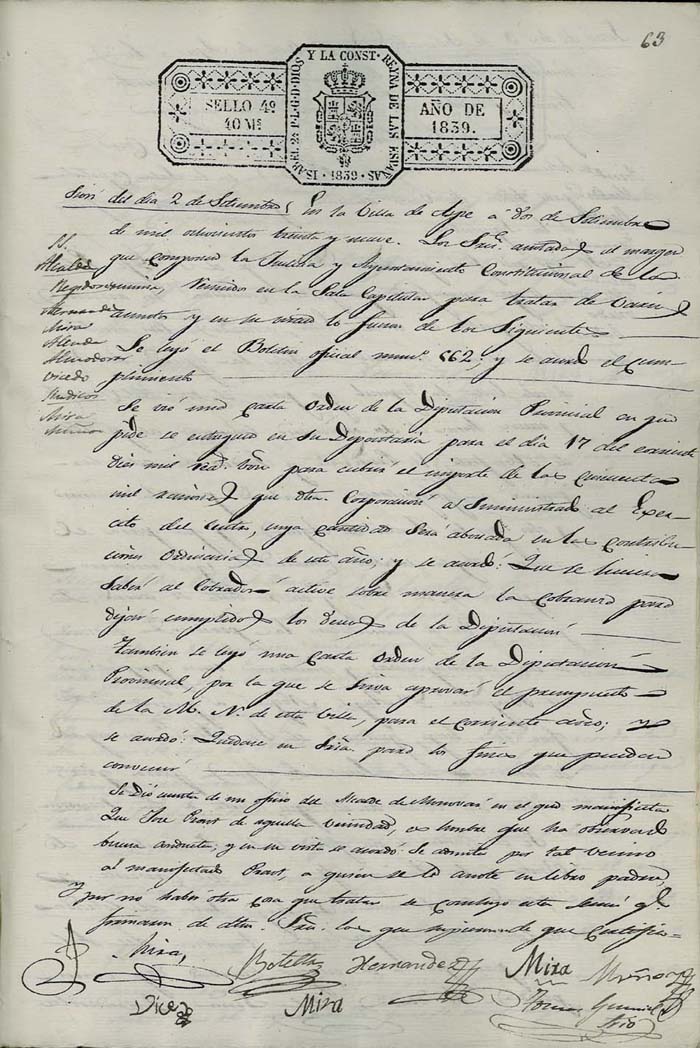 63
ISABEL 2ª P.L.G.D.DIOS Y LA CONST. REYNA DE LAS ESPAÑAS
SELLO 4º
40 Ms.
AÑO DE
1839.
1839
Sion del dia 2 de Setiembre En la Villa de Aspe a dos de Setiembre
de mil ochocientos treinta y nueve. Los Sres. anotados al margen
que componen la Justicia y Ayuntamiento Constitucional de la
misma, reunidos en la Sala Capitular para tratar de varios
asuntos y en su virtud lo fueron de los Siguientes
SS.
Alcalde
Regidores
Hernandez
Mira
Almodovar
Vicedo
Sindicos
Mira
Muñoz
Se leyó el Boletin oficial num.º 662, y se acordó el cum-
plimiento
Se vió una Carta Orden de la Diputacion Provincial en que
pide se entreguen en su Depositaria para el dia 17 del corriente
diez mil rs. von. para cubrir el importe de las cincuenta
mil raciones que dha. Corporacion a suministrado al Exer-
cito del Centro, cuya cantidad será abonada en las contribu-
ciones Ordinarias de este año; y se acordó: Que se hiciera
saber al Cobrador active sobre manera la cobranza para
dejar cumplidos los deseos de la Diputacion
Tambien se leyó una Carta Orden de la Diputacion
Provincial, por la que se sirve aprovar el presupuesto
de la M. N. de esta Villa, para el corriente año; y
se acordó: Quedase en Sria. para los fines que puedan
convenir
Se dió cuenta de un oficio del Alcalde de Monovar en el que manifiesta
Que Jose de aquella vecindad, es hombre que ha observado
buena conducta; y en su vista se acordó: Se admita por tal vecino
al manifestado a quien se le anote en libro padron,
Y por no haber otra cosa que tratar se concluyó esta sesion qe.
firmaron de dhos. Sres. los que supieron de que Certifico
Mira,
Botella
Hernandez
Mira
Muñoz
Vicedo
Mira
Tomas
Srio